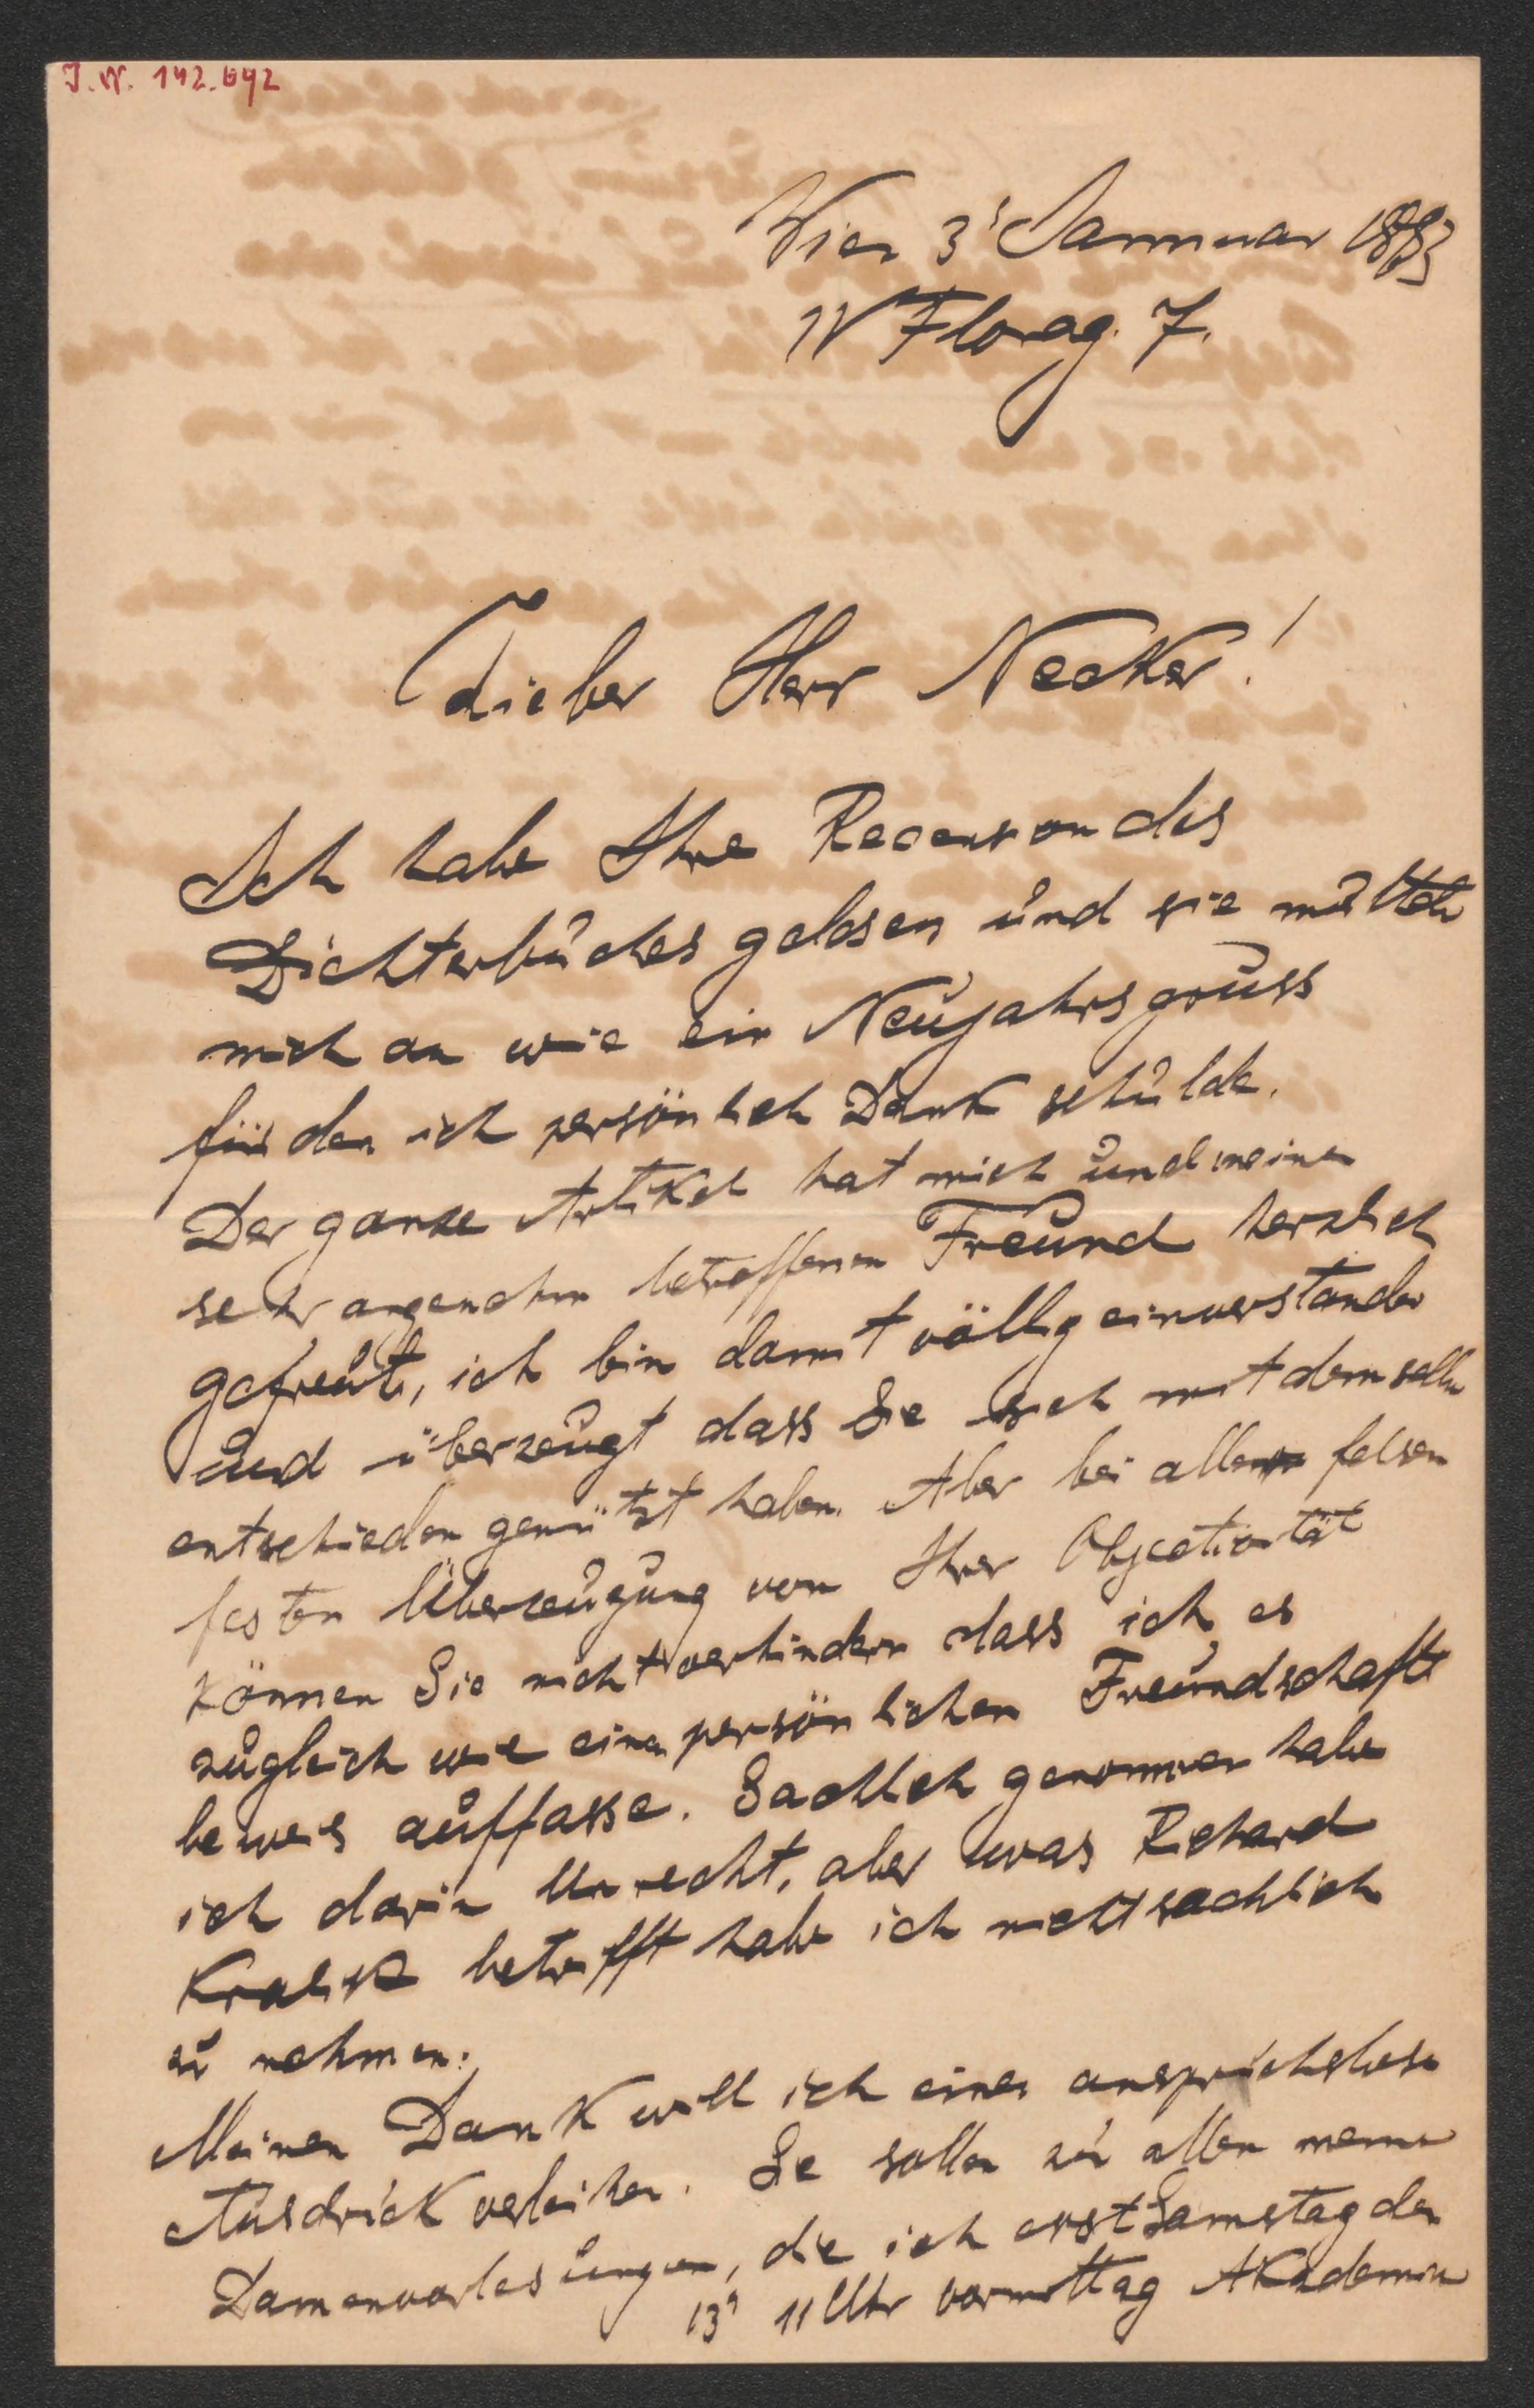 J.N. 142.092
Wien 3' Jannuar 1883
IV Florag. 7.
Lieber Herr Necker!
Ich habe Ihre Recension des
Dichterbuches gelesen und sie muthete
mich an wie ein Neujahrsgruss
für den ich persönlich Dank schulde.
Der ganze Artikel hat mich und meinen
sehr angenehm betroffenen Freund herzlich
gefreut, ich bin damit völlig einverstanden
und überzeugt dass Sie sich mit demselben
entschieden genützt haben. Aber bei aller felsen
festen Überzeugung von Ihrer Objectivität
können Sie nicht verhindern dass ich es
zugleich wie einen persönlichen Freundschafts
beweis auffasse. Sachlich genommen habe
ich darin Unrecht, aber was Richard
Kralik betrifft habe ich nicht sachlich
zu nehmen.
Meinen Dank will ich einen anspruchslosen
Ausdruck verleihen. Sie sollen zu allen meinen
Damenvorlesungen, die ich erst Samstag den
13' 11 Uhr vormittag